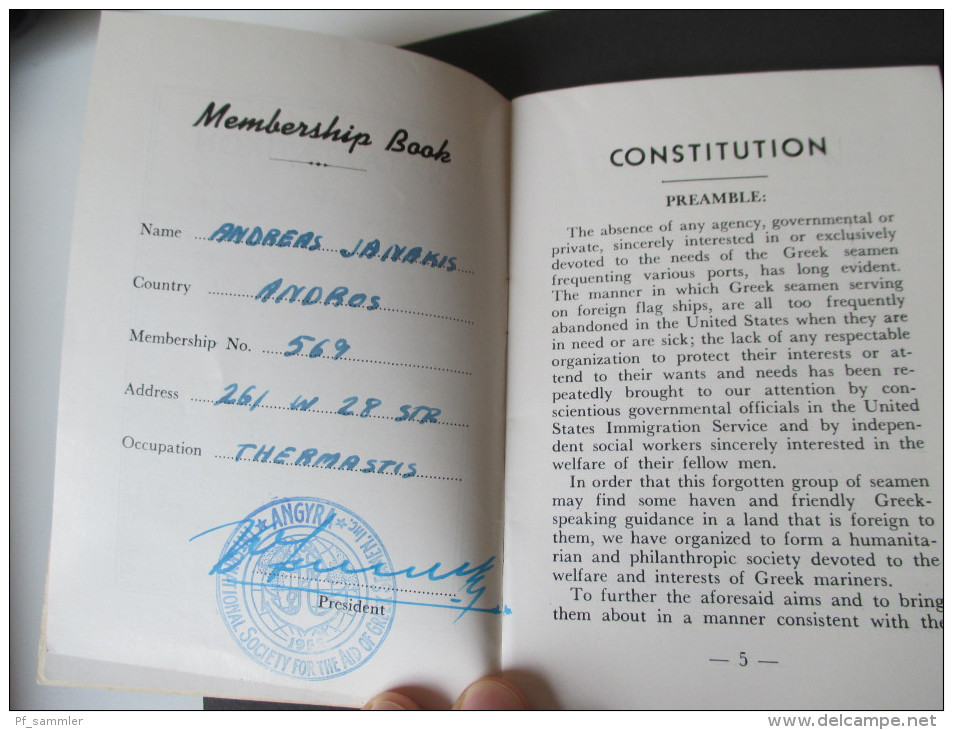 Membership Book
Name ANDREAS JANAKIS
Country ANDROS
Membership No. 569
Address 261 W 28 STR
Occupation THERMASTIS
ANGYRA
INC.
SOCIETY FOR THE AID OF GREEK
President
CONSTITUTION
PREAMBLE:
The absence of any agency, governmental or
private, sincerely interested in or exclusively
devoted to the needs of the Greek seamen
frequenting various ports, has long evident.
The manner in which Greek seamen serving
on foreign flag ships, are all too frequently
abandoned in the United States when they are
in need or are sick; the lack of any respectable
organization to protect their interests or at-
tend to their wants and needs has been re-
peatedly brought to our attention by con-
scientious governmental officials in the United
States Immigration Service and by indepen-
dent social workers sincerely interested in the
welfare of their fellow men.
In order that this forgotten group of seamen
may find some haven and friendly Greek-
speaking guidance in a land that is foreign to
them, we have organized to form a humanita-
rian and philanthropic society devoted to the
welfare and interests of Greek mariners.
To further the aforesaid aims and to bring
them about in a manner consistent with the
— 5 —
Pf_sammler
www.delcampe.net